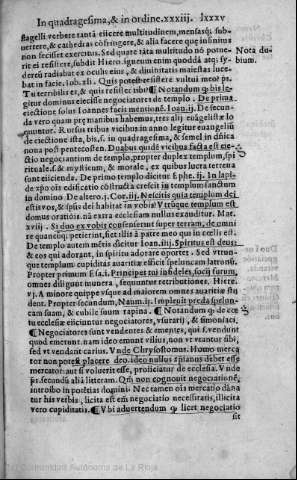 In quadragesima, & in ordine.xxxiij. lxxxv
flagelli verbere tantā eiicere multitudinem, mensasq; sub-
uertere, & cathedras cōfringere, & alia facere que infinitus
non fecisset exercitus. Sed quare tāta multitudo nō pote-
rit ei resistere, subdit Hiero. igneum enim quoddā atq; sy-
dereū radiabat ex oculis eius, & diuinitatis maiestas luce-
bat in facie. iob.
Nota du-
bium.
Tu terribilis es, & quis resistet tibi ¶ Notandum q bis le-
gitur dominus eiecisse negociatores de templo. De prima
eiectione solus Ioannes facit mentionē. Ioan.ij. De secun-
da vero quam pre manibus habemus, tres alij euāgelistæ lo
quuntur. Rursus tribus vicibus in anno legitur euangeliū
de eiectione ista, bis, s. in quadragesima, & semel in dñica
nona post pentecosten. Duabus quidē vicibus facta est eie-
ctio negociantium de templo, propter duplex templum, spi
rituale, s. & mysticum, & morale, ex quibus lucra terrena
sunt eiicienda. De primo templo dicitur Ephe. ij. In lapi-
de xpo ois edificatio cōstructa crescit in templum sanctum
in domino. De altero. j. Cor. iij. Nescitis quia templum dei
estis vos, & spūs dei habitat in vobis? Vtrūque templum est
domus orationis. nā extra ecclesiam nullus exauditur. Mat.
xviij. Si duo ex vobis consenserint super terram, de omni
re quancūq; petierint, fiet illis à patre meo qui in cœlis est.
De templo autem mētis dicitur Ioan. iiij. Spiritus est deus:
& eos qui adorant, in spiritu adorare oportet. Sed vtrun-
que templum cupiditas auaritiæ efficit speluncam latronū.
Propter primum Esa. i. Principes tui infideles, socij furum,
omnes diligunt munera, sequuntur retributiones. Hiere.
vj. A minore quippe vsque ad maiorem omnes auaritiæ stu
dent. Propter secundum, Naum. ij. Impleuit preda spelun-
cam suam, & cubile suum rapina. ¶ Notandum q de cœ
tu ecclesiæ eiiciuntur negociatores, vsurarij, & simoniaci,
¶ Negociatores sunt vendentes & ementes, qui s. vendunt
quod emerunt. nam ideo emunt vilius, non vt reantur sibi,
sed vt vendant carius. Vnde Chrysostomus. Homo merca
tor non potest placere deo. ideo nullus xpianus debet esse
mercator: aut si voluerit esse, proiiciatur de ecclesia. Vnde
psr. secundū aliā litteram. Qm̄ non cognouit negociationē,
introibo in potētias domini. Nec tamen ois mercatio dāna
tur his verbis, licita est em̄ negociatio necessitatis, illicita
vero cupiditatis. ¶ Vbi aduertendum q licet negociatio
sit
Comunidad Autónoma de La Rioja